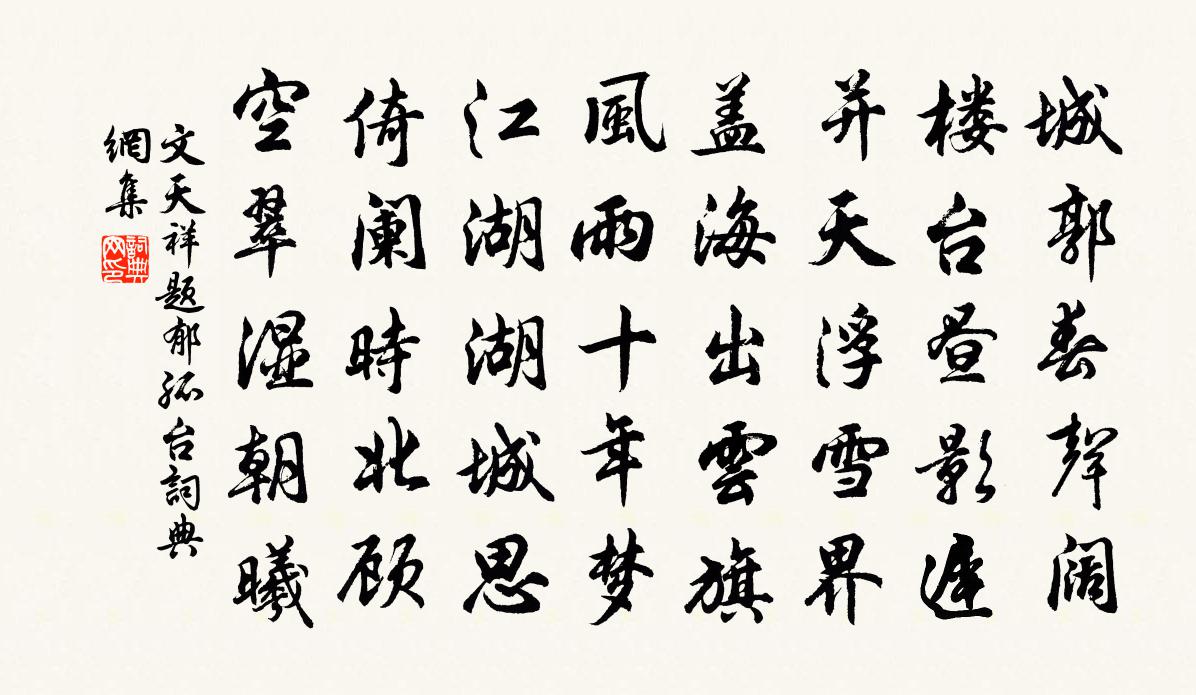 城郭春聲阔
楼台昼影遲
并天浮雪界
盖海出雲旗
風雨十年梦
江湖湖城思
倚阑時北顾
空翠湿朝曦
文天祥题郁孤台詞典
網集
詞典网印